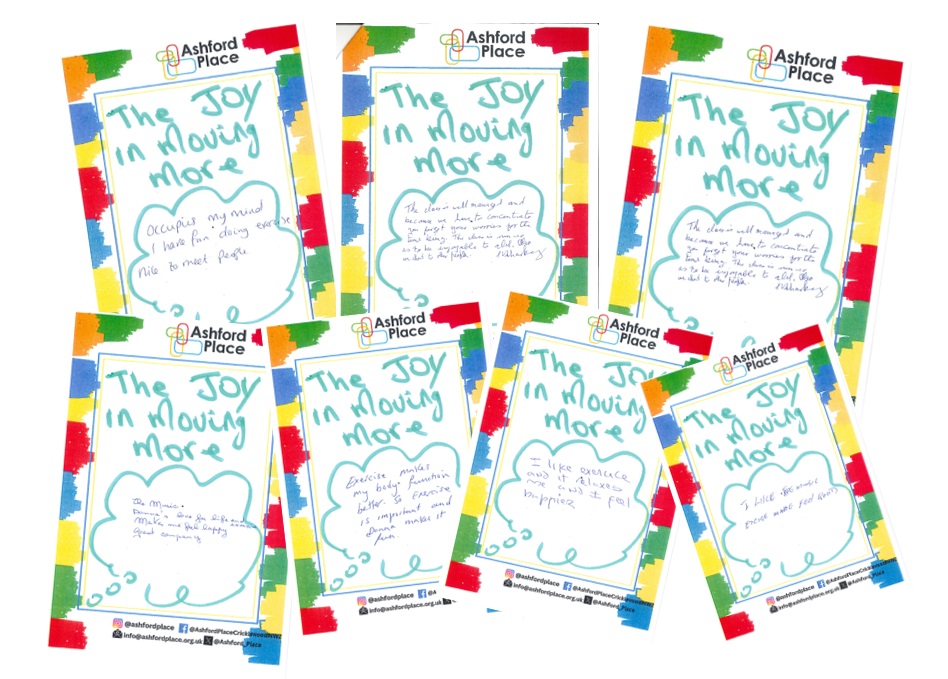 Ashford
Place
The JOY
in Moving
More
Occupies my mind
I have fun doing exercise
Nice to meet People
Ashford
Place
The JOY
in Moving
More
The class is well managed and
because we have to concentrate
you forget your worries for the
time being. The class is
as to be enjoyable to all.
Ashford
Place
The JOY
in Moving
More
The class is well managed and
because we have to concentrate
you forget your worries for the
time being. The class is
as to be enjoyable to all.
Ashford
Place
The JOY
in Moving
More
The Music.
Donna's love for life
Make me feel happy
Good company
@ashfordplace @AshfordPlaceCricklewoodNW2
info@ashfordplace.org.uk @Ashford_Place
Ashford
Place
The JOY
in Moving
More
Exercise makes
my body function
better. So Exercise
is important and
Donna makes it
fun.
@ashfordplace @A
info@ashfordplace.org.uk
Ashford
Place
The JOY
in Moving
More
I like exercice
and it relaxes
me and I feel
happier
@ashfordplace @AshfordPlaceCricklewoodNW2
info@ashfordplace.org.uk @Ashford_Place
Ashford
Place
The JOY
in Moving
More
I LIKE THE MUSIC
MAKE FEEL GOOD
@ashfordplace @AshfordPlaceCricklewoodNW2
info@ashfordplace.org.uk @Ashford_Place